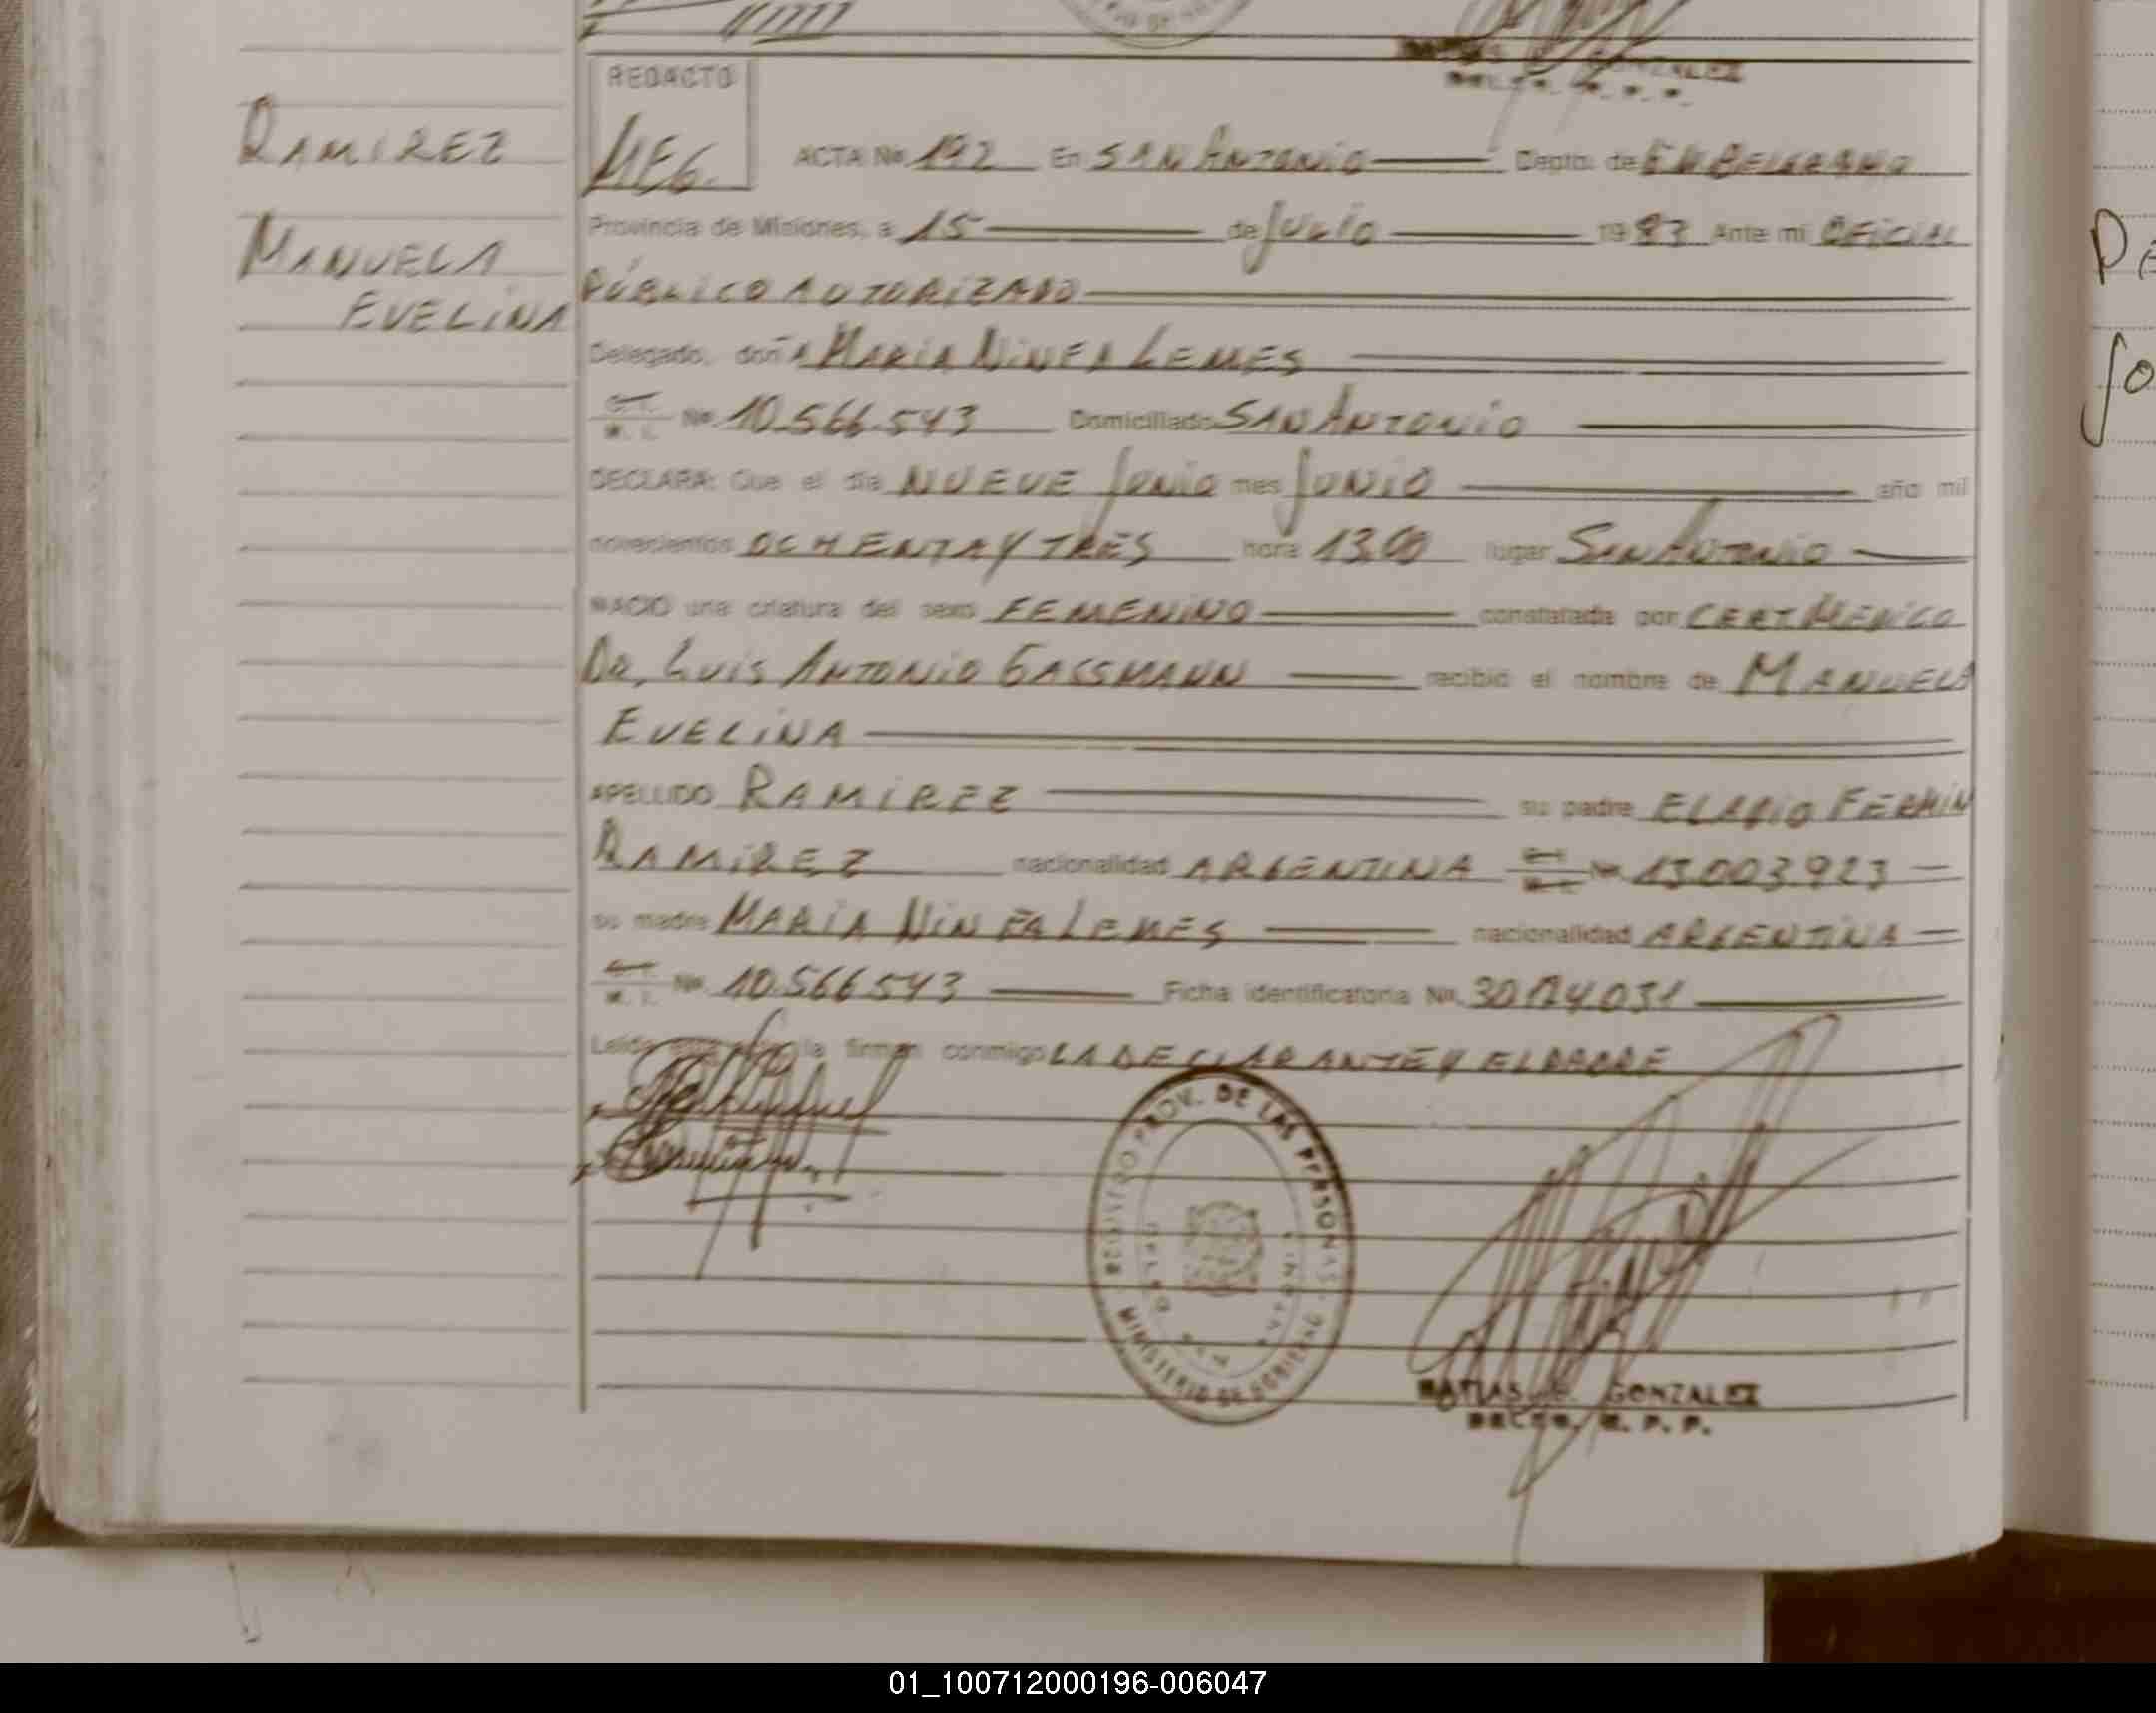 REDACTO
RAMIREZ
MEG. ACTA No 192 En SAN ANTONIO Depto. de
MANUELA
EVELINA
Provincia de Misiones, a 15 de JULIO 1983 Ante mi OFICIAL
PÚBLICO AUTORIZADO
Delegado, doñA MARIA NINFA LEMES
No 10.566.543 Domiciliado SAN ANTONIO
DECLARA: Que el dia NUEVE JUNIO mes JUNIO año mil
novecientos OCHENTA Y TRES hora 13,00 lugar SAN ANTONIO
NACIO una criatura del sexo FEMENINO constatada por CERT. MEDICO
DR. LUIS ANTONIO GASSMANN recibió el nombre de MANUELA
EVELINA
APELLIDO RAMIREZ su padre ELADIO FERMIN
RAMIREZ nacionalidad ARGENTINA No 13.003.923
su madre MARIA NINFA LEMES nacionalidad ARGENTINA
M. I. No 10.566.543 Ficha identificatoria No.
Leida la firman conmigo LA DECLARANTE Y EL PADRE
PROV. DE LAS PERSONAS
MINISTERIO DE GOBIERNO
MATIAS GONZALEZ
R. P. P.
01_100712000196-006047